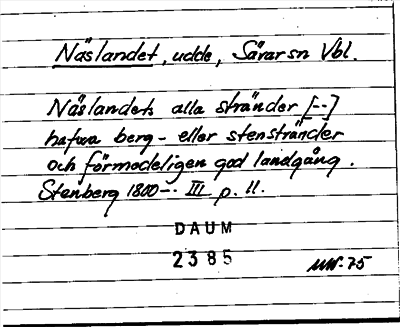 Näslandet, udde, Sävar sn Vbl.
Näslandets alla stränder [--]
hafva berg- eller stenstränder
och förmodeligen god landgång.
Stenberg 1800-. III p. 11.
DAUM
2385
-75